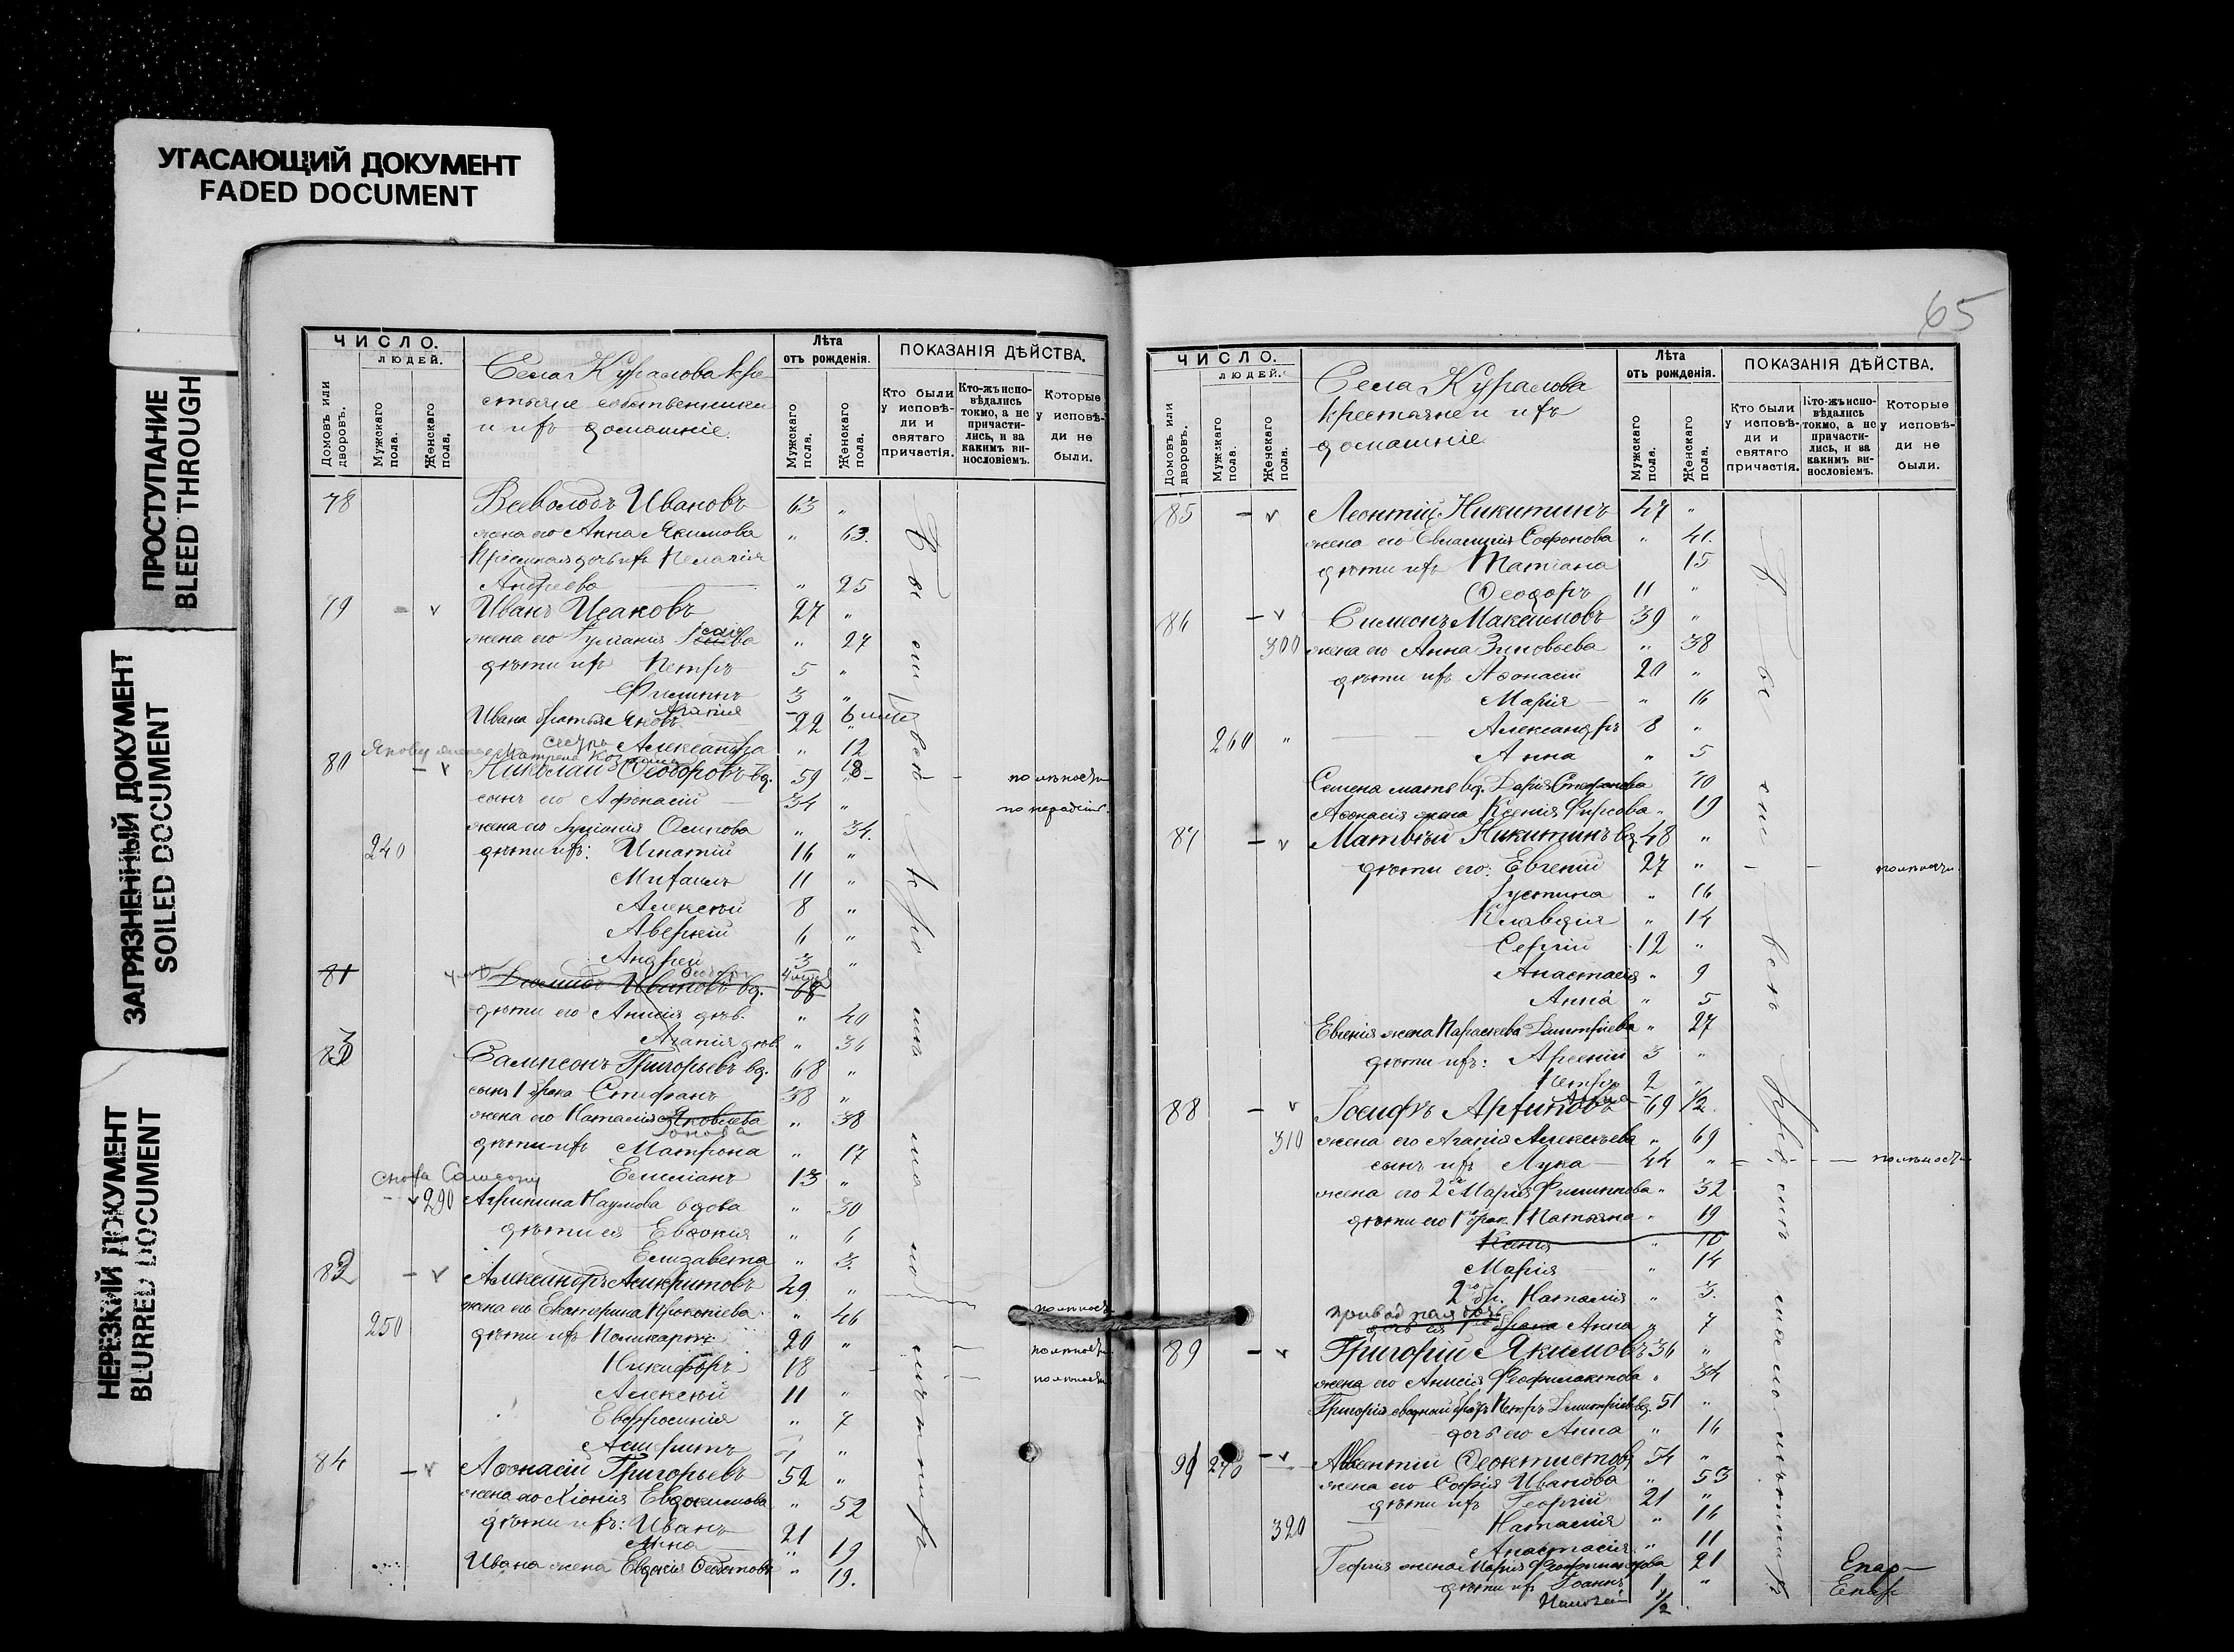 УГАСАЮЩИЙ ДОКУМЕНТ
FADED DOCUMENT
ПРОСТУПАНИЕ
BLEED THROUGH
ЗАГРЯЗНЕННЫЙ ДОКУМЕНТ
SOILED DOCUMENT
НЕРЕЗКИЙ ДОКУМЕНТ
BLURRED DOCUMENT
ЧИСЛО.
ЛЮДЕЙ.
Домовъ или дворовъ.
Мужскаго пола.
Женскаго пола.
Села Куралова кре-
стьяне собственники
и ихъ домашніе.
Лѣта
отъ рожденія.
Мужскаго пола.
Женскаго пола.
ПОКАЗАНІЯ ДѢЙСТВА.
Кто были
у исповѣ-
ди и
святаго
причастія.
Кто-жъ испо-
вѣдались
токмо, а не
причасти-
лись, и за
какимъ ви-
нословіемъ.
Которые
у исповѣ-
ди не
были.
78 Всеволодъ Ивановъ 63 "
жена его Анна Якимова " 63.
Пріемная дочь ихъ Пелагія
Андреева " 25
79 - v Иванъ Исаковъ 27 "
жена его Іуліанія " 27
дѣти ихъ Петръ 5 "
Филиппъ 3 "
Агапія 6 мѣс
Ивана братья Яковъ 22 "
сестра Александра " 12
Матрена 18
80 - v Николай Ѳеодоровъ вд. 59 " - - по лѣности
сынъ его Афанасій 34 " по нерадѣнію
жена его Іуліанія Осипова " 34.
240 дѣти ихъ: Игнатій 16 "
Михаилъ 11 "
Алексѣй 8 "
Аверкій 6 "
Андрей 3 "
81 Диомидъ Ивановъ вд. 68
дѣти его Анисія дѣв. " 40
Агапія дѣв. " 36
83 Сампсонъ Григорьевъ вд. 68 "
сынъ 1 брака Стефанъ 38 "
жена его Наталія Яковлева " 38
дѣти ихъ Матрона " 17
Емиліанъ 13 "
сноха Сампсону
- v 290 Агрипина Наумова вдова " 30
дѣти ея Евдокія " 6
Елизавета " 3.
82 - v Александръ Асикритовъ 49 "
жена его Екатерина Прокопіева " 46 по лѣности
250 дѣти ихъ Поликарпъ 20 " по лѣности
Никифоръ 18 - по лѣности
Алексѣй 11 "
Евфросинія " 7
84 - v Аѳонасій Григорьевъ 52 "
жена его Хіонія Евдокимова " 52
дѣти ихъ: Иванъ 21
Анна " 19
Ивана жена Евдокія " 19.
65
ЧИСЛО.
ЛЮДЕЙ.
Домовъ или дворовъ.
Мужскаго пола.
Женскаго пола.
Села Куралова
крестьяне и ихъ
домашніе
Лѣта
отъ рожденія.
Мужскаго пола.
Женскаго пола.
ПОКАЗАНІЯ ДѢЙСТВА.
Кто были
у исповѣ-
ди и
святаго
причастія.
Кто-жъ испо-
вѣдались
токмо, а не
причасти-
лись, и за
какимъ ви-
нословіемъ.
Которые
у исповѣ-
ди не
были.
85 - v Леонтій Никитинъ 47 "
жена его Евлампія Софонова " 41.
дѣти ихъ Татіана 15
Ѳеодоръ 11 "
86 - v Симеонъ Максимовъ 39 "
300 жена его Анна Зиновьева " 38
дѣти ихъ Аѳонасій 20 "
Марія " 16
260 " Александръ 8 "
Анна " 5
Семена мать вд. Дарія Стефанова 70
Аѳонасія жена Ксенія Фирсова " 19
87 - v Матвѣй Никитинъ вд. 48 "
дѣти его: Евгеній 27 " - - по лѣности
Іустина " 16
Клавдія " 14
Сергій 12 "
Анастасія " 9
Анна " 5
Евгенія жена Параскева Димитріева " 27
дѣти ихъ: Арсеній 3 "
Петръ 2 "
Анна 1/2
88 - v Іосифъ Архиповъ 69
310 жена его Агапія Алексѣева " 69
сынъ ихъ Лука 44 " - - - по лѣности
жена его 2я Марія Филиппова " 32
дѣти его 1 брак. Татьяна " 19
Ксенія " 16
Марія " 14
2го бр. Наталія " 3.
приводная дочь
дочь ея 1го брака Анна " 7
89 - v Григорій Якимовъ 36 "
жена его Анисія Феофилактова " 34
Григорія сводный братъ Петръ Димитріевъ вд. 51 "
дочь его Анна " 16
90 270 - v Авксентій Ѳеоктистовъ 54 "
жена его Софія Иванова " 53
дѣти ихъ Георгій 21 "
320 Наталія " 16
Анастасія " 11
Георгія жена Марія " 21
дѣти ихъ Іоаннъ 1 "
1/2